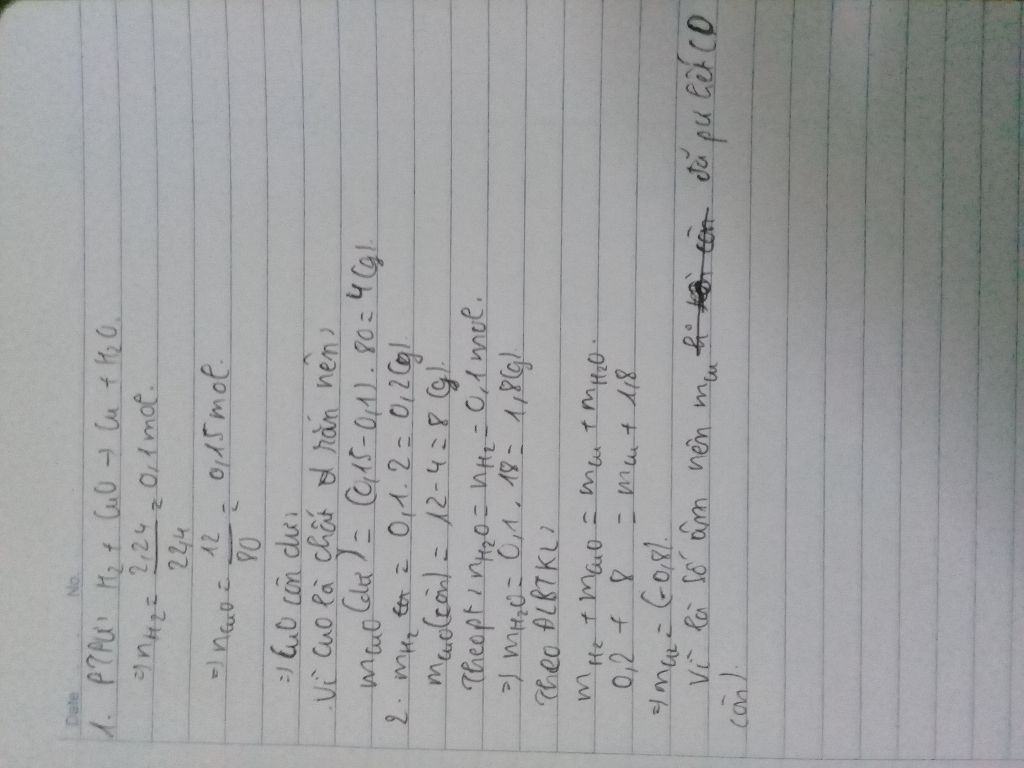 Date No.
1. PTPƯ: H₂ + CuO → Cu + H₂O.
=) nH₂ = 2,24 / 22,4 = 0,1 mol.
=) nCuO = 12 / 80 = 0,15 mol.
=) CuO còn dư,
Vì CuO là chất rắn nên,
mCuO (dư) = (0,15 - 0,1). 80 = 4 (g).
2. mH₂ = 0,1. 2 = 0,2 (g).
mCuO (còn) = 12 - 4 = 8 (g).
Theo pt, nH₂O = nH₂ = 0,1 mol.
=) mH₂O = 0,1. 18 = 1,8 (g).
Theo ĐLBTKL,
mH₂ + mCuO = mCu + mH₂O.
0,2 + 8 = mCu + 1,8
=) mCu = (-0,8).
Vì là số âm nên mCu đã pư hết (0
còn).